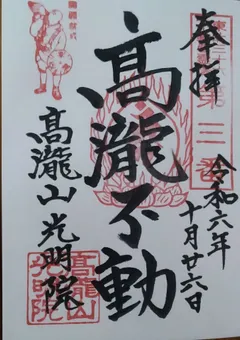 奉拝
第三番
令和六年
十月廿六日
髙瀧不動
髙瀧山光明院
髙瀧山
光明院